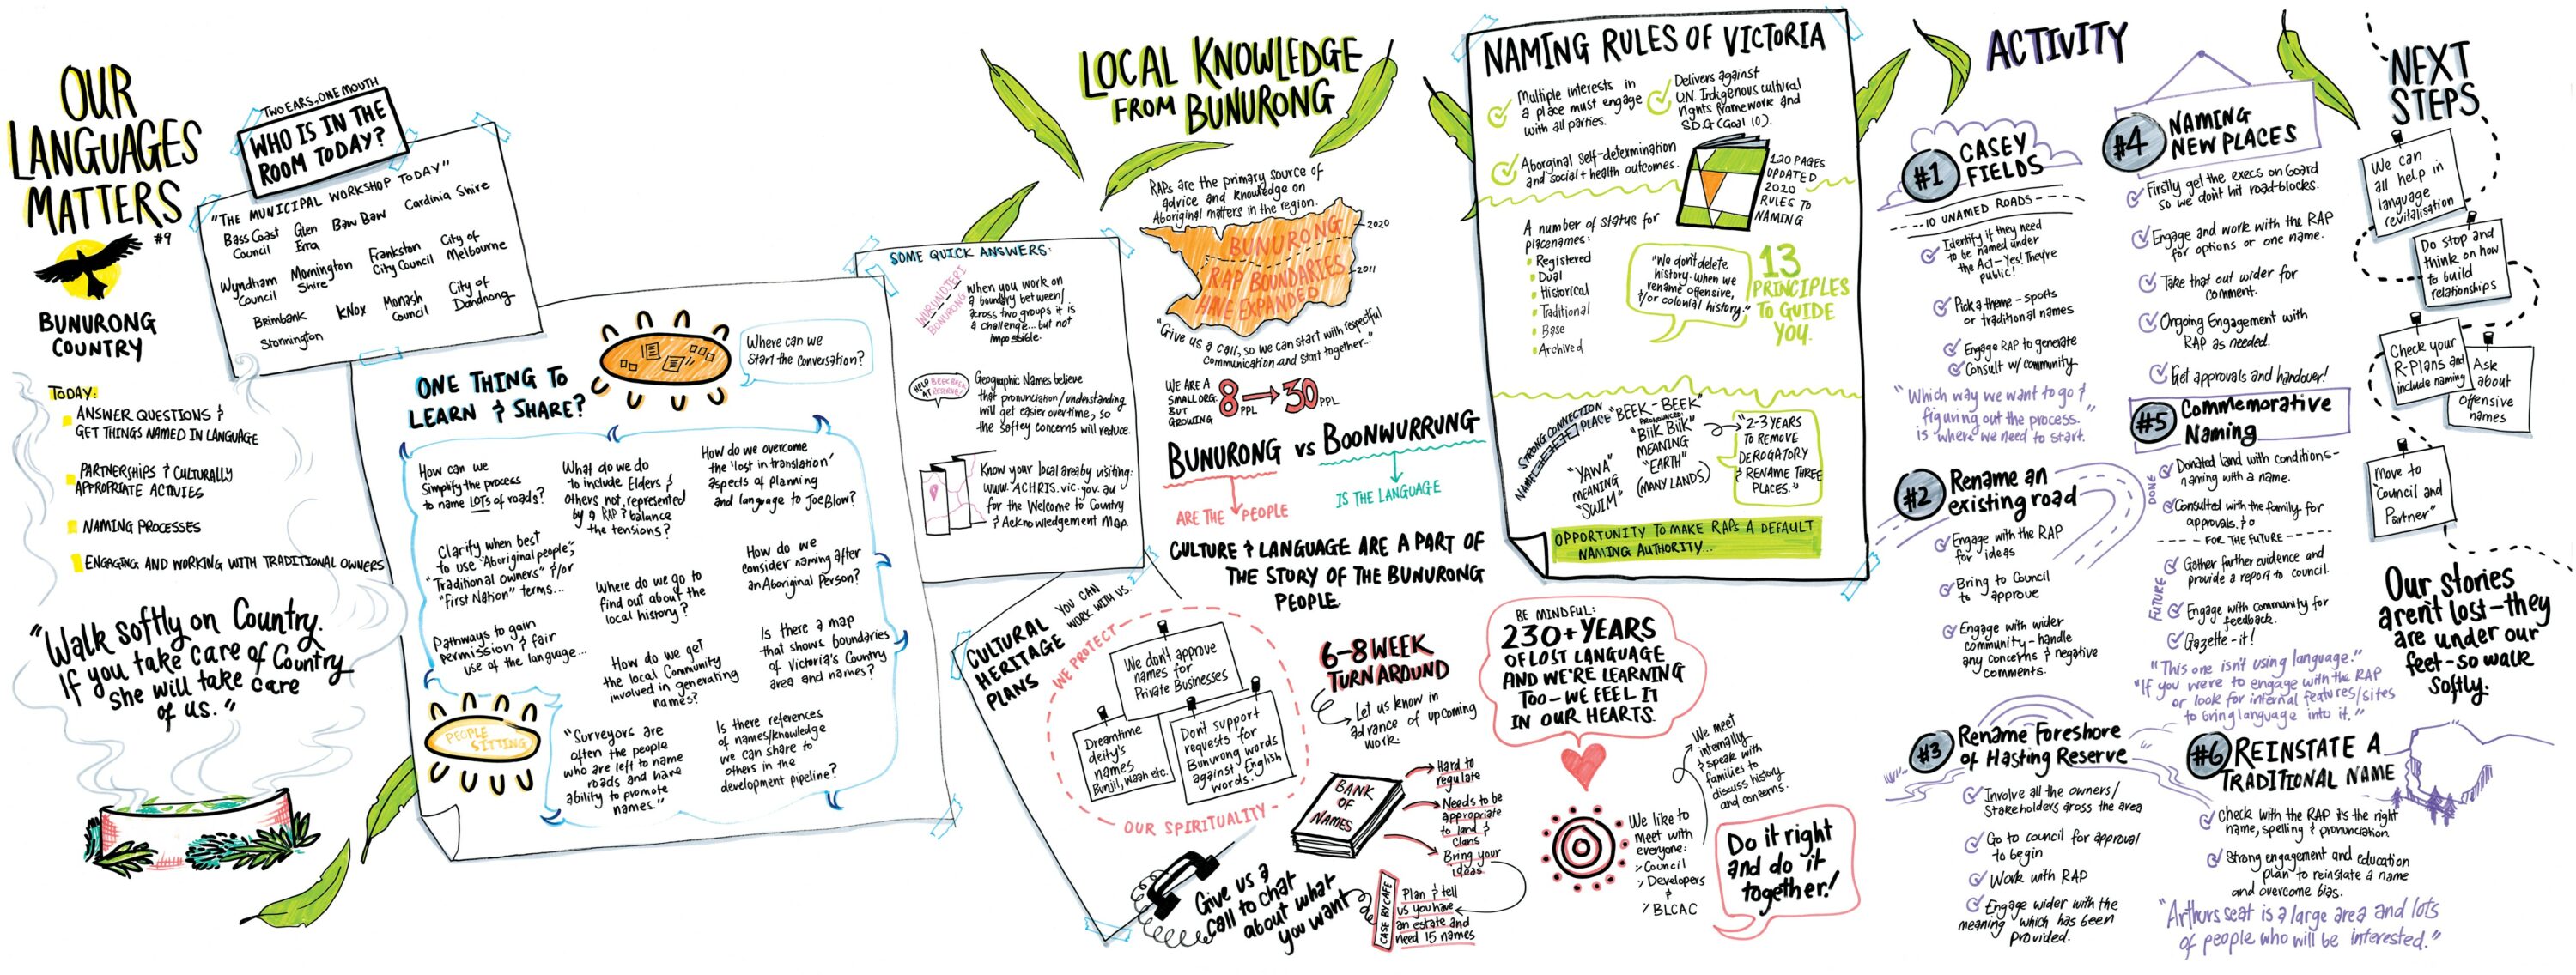 OUR
LANGUAGES
MATTERS
#9
BUNURONG
COUNTRY
TODAY:
ANSWER QUESTIONS &
GET THINGS NAMED IN LANGUAGE
PARTNERSHIPS & CULTURALLY
APPROPRIATE ACTIVIES
NAMING PROCESSES
ENGAGING AND WORKING WITH TRADITIONAL OWNERS
"Walk softly on Country.
If you take care of Country
she will take care
of us."
TWO EARS, ONE MOUTH
WHO IS IN THE
ROOM TODAY?
"THE MUNICIPAL WORKSHOP TODAY"
Bass Coast
Council
Glen
Eira
Baw Baw
Cardinia Shire
Wyndham
Council
Mornington
Shire
Frankston
City Council
City of
Melbourne
Brimbank
Knox
Monash
Council
City of
Dandnong
Stonnington
ONE THING TO
LEARN & SHARE?
Where can we
Start the conversation?
How can we
Simplify the process
to name LOTS of roads?
What do we do
to include Elders &
others not represented
by a RAP & balance
the tensions?
How do we overcome
the 'lost in translation'
aspects of planning
and language to Joe Blow?
Clarify when best
to use "Aboriginal people",
"Traditional owners" &/or
"First Nation" terms...
Where do we go to
find out about the
local history?
How do we
consider naming after
an Aboriginal Person?
Pathways to gain
permission & fair
use of the language...
How do we get
the local Community
involved in generating
names?
Is there a map
that shows boundaries
of Victoria's Country
area and names?
PEOPLE
SITTING
"Surveyors are
often the people
who are left to name
roads and have
ability to promote
names."
Is there references
of names/knowledge
we can share to
others in the
development pipeline?
SOME QUICK ANSWERS:
WURUNDJERI
BUNURONG
When you work on
a boundry between/
across two groups it is
a challenge... but not
impossible.
Geographic Names believe
that pronunciation/understanding
will get easier overtime, so
the softey concerns will reduce.
Know your local area by visiting:
www.ACHRIS.vic.gov.au
for the Welcome to Country
& Acknowledgement Map.
LOCAL KNOWLEDGE
FROM BUNURONG
RAPs are the primary source of
advice and knowledge on
Aboriginal matters in the region.
BUNURONG
RAP BOUNDARIES
HAVE EXPANDED
2020
2011
"Give us a call, so we can start with respectful
communication and start together..."
WE ARE A
SMALL ORG.
BUT
GROWING
8 PPL
30 PPL
BUNURONG vs BOONWURRUNG
ARE THE PEOPLE
IS THE LANGUAGE
CULTURE & LANGUAGE ARE A PART OF
THE STORY OF THE BUNURONG
PEOPLE.
CULTURAL
HERITAGE
PLANS
YOU CAN
WORK WITH US.
WE PROTECT
We don't approve
names for
Private Businesses
Dreamtime
deity's
names
Bunjil, Waah etc.
Don't support
requests for
Bunurong words
against English
words.
OUR SPIRITUALITY
Give us a
call to chat
about what
you want
6-8 WEEK
TURNAROUND
Let us know in
advance of upcoming
work.
BANK
OF
NAMES
Hard to
regulate
Needs to be
appropriate
to land &
Clans
Bring your
ideas
CASE BY CAFE
Plan & tell
us you have
an estate and
need 15 names
BE MINDFUL:
230+ YEARS
OF LOST LANGUAGE
AND WE'RE LEARNING
TOO-WE FEEL IT
IN OUR HEARTS.
We like to
meet with
everyone:
Council
Developers
&
BLCAC
We meet
internally
& speak with
families to
discuss history
and concerns.
Do it right
and do it
together!
NAMING RULES OF VICTORIA
Multiple interests in
a place must engage
with all parties.
Delivers against
U.N. Indigenous cultural
rights framework and
S.D.G (Goal 10).
Aborginal self-determination
and social + health outcomes.
120 PAGES
UPDATED
2020
RULES TO
NAMING
A number of status for
placenames:
Registered
Dual
Historical
Traditional
Base
Archived
"We don't delete
history when we
rename offensive,
&/or colonial history."
13
PRINCIPLES
TO GUIDE
YOU.
STRONG CONNECTION
NAME
PLACE
"BEEK-BEEK"
PRONOUNCED:
"BIIK BIIK"
MEANING
"EARTH"
(MANY LANDS)
"YAWA"
MEANING
"SWIM"
"2-3 YEARS
TO REMOVE
DEROGATORY
& RENAME THREE
PLACES."
OPPORTUNITY TO MAKE RAPs A DEFAULT
NAMING AUTHORITY...
ACTIVITY
#1 CASEY
FIELDS
10 UNAMED ROADS
Identify if they need
to be named under
the Act-Yes! They're
public!
Pick a theme - sports
or traditional names
Engage RAP to generate
Consult w/ community
"Which way we want to go &
figuring out the process.
is where we need to start."
#2 Rename an
existing road
Engage with the RAP
for ideas
Bring to Council
to approve
Engage with wider
community - handle
any concerns & negative
comments.
#3 Rename Foreshore
of Hasting Reserve
Involve all the owners/
Stakeholders aross the area
Go to council for approval
to begin
Work with RAP
Engage wider with the
meaning which has been
provided.
#4 NAMING
NEW PLACES
Firstly get the execs on Board
so we don't hit road-blocks.
Engage and work with the RAP
for options or one name.
Take that out wider for
comment.
Ongoing Engagement with
RAP as needed.
Get approvals and handover!
#5 Commemorative
Naming
DONE
Donated land with conditions-
naming with a name.
Consulted with the family for
approvals.
FOR THE FUTURE
FUTURE
Gather further evidence and
provide a report to council.
Engage with community for
feedback.
Gazette-it!
"This one isn't using language."
"If you were to engage with the RAP
or look for internal features/sites
to bring language into it."
#6 REINSTATE A
TRADITIONAL NAME
Check with the RAP its the right
name, spelling & pronunciation.
Strong engagement and education
plan to reinstate a name
and overcome bias.
"Arthurs seat is a large area and lots
of people who will be interested."
NEXT
STEPS
We can
all help in
language
revitalisation
Do stop and
think on how
to build
relationships
Check your
R-Plans and
include naming
Ask
about
offensive
names
Move to
"Council and
Partner"
Our stories
aren't lost-they
are under our
feet-so walk
softly.